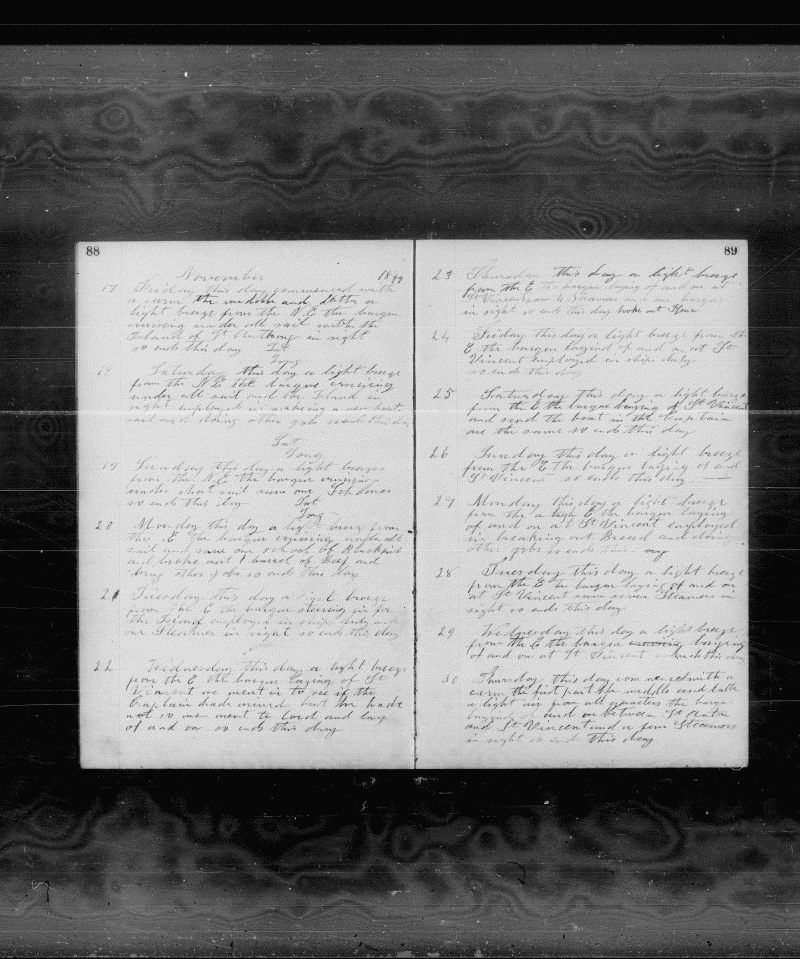 88
November 1899
17 Friday this day commenced with
a carm the middle and latter a
light breeze from the N.E. the barque
cruising under all sail with the
Island of St Anthony in sight
so ends this day Lat
Long
18 Saturday this day a light breeze
from the N E the barque cruising
under all sail and the Island in
sight employed in makeing a new boat
sail and doing other jobs so ends this day
Lat
Long
19 Sunday this day a light breeze
from the N.E the barque cruising
under short sail saw one Schooner
so ends this day Lat
Long
20 Monday this day a light breeze from
the .E the barque cruising under all
sail and saw one school of Blackfish
and broke out 1 barrel of Beef and
doing other jobs so ends this day
21 Tuesday this day a light breeze
from the E the barque steering in for
the Island employed in ships duty and
one Steamer in sight so ends this day
22 Wednesday this day a light breeze
from the E the barque laying of St
Vincent we went in to see if the
Captain had arived but he hade
not so we went to bord and lay
of and on so ends this day
89
23 Thursday this day a light breeze
from the E the barque laying of and on at
St Vincent saw 4 Steamers and one barque
in sight so ends this day broke out Flour
24 Friday this day a light breeze from the
E. the barque laying of and on at St
Vincent employed in ships duty
so ends this day
25 Saturday this day a light breeze
from the E the barque laying of St Vincent
and send the boat in the Captain
are the same so ends this day
26 Sunday this day a light breeze
from the E the barque laying of and
St Vincent so ends this day
27 Monday this day a light breeze
from the E the barque laying
of and on at St Vincent employed
in breaking out Bread and doing
other jobs so ends this day
28 Tuesday this day a light breeze
from the E the barque laying of and on
at St Vincent saw seven Steamers in
sight so ends this day
29 Wednesday this day a light breeze
from the E the barque cruising laying
of and on at St Vincent so ends this day
30 Thursday this day commenced with a
carm the first part the middle and latter
a light air from all quarters the barque
laying and on between St Anton
and St Vincent and a few Steamers
in sight so ends this day